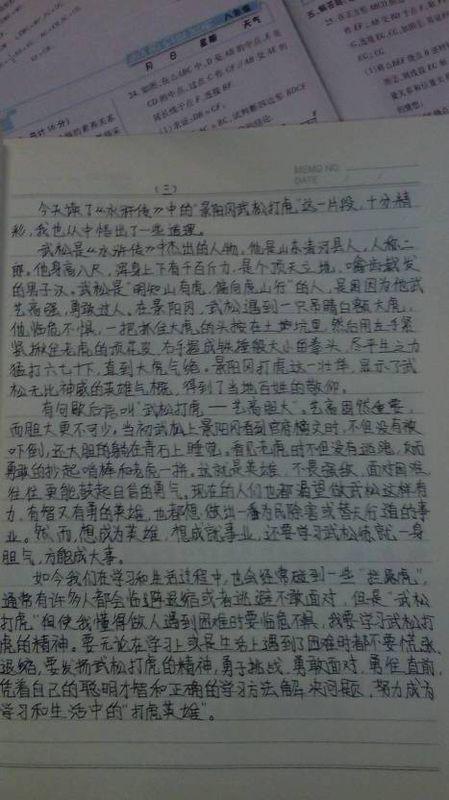 八年级
月 日 星期 天气
24. 如图,在△ABC中,D是AB的中点,E是
CD的中点,过点C作CF//AB交AE的
延长线于点F,连接BF.
(1)求证:DB=CF;
MEMO NO.
DATE / /
(三)
今天读了《水浒传》中的“景阳冈武松打虎”这一片段,十分精
彩,我也从中悟出了一些道理。
武松是《水浒传》中杰出的人物,他是山东清河县人,人称二
郎。他身高八尺,浑身上下有千百斤力,是个顶天立地,噙齿戴发
的男子汉。武松是“明知山有虎,偏向虎山行”的人,是因因为他武
艺高强,勇敢过人,在景阳冈,武松遇到一只吊睛白额大虎,
他临危不惧,一把抓住大虎,的头按在土地坑里,然后用左手紧
紧揪住老虎的顶花皮,右手握成铁锤般大小的拳头,尽平生之力
猛打六七十下,直到大虎气绝。景阳冈打虎这一壮举,显示了武
松无比神威的英雄气概,得到了当地百姓的敬仰。
有句歇后语叫“武松打虎——艺高胆大”。艺高固然重要,
而胆大更不可少。当初武松上景阳冈看到官府榜文时,不但没有被
吓倒,还大胆的躺在青石上睡觉。看见老虎时不但没有逃跑,反而
勇敢的抄起哨棒和老虎一拼。这就是英雄,不畏强敌,面对困难
往往更能鼓起自信的勇气。现在的人们也都渴望做武松这样有
力,有智又有勇的英雄,也都想做出一番为民除害或替天行道的事
业。然而,想成为英雄,想成就事业,还要学习武松练就一身
胆气,方能成大事。
如今我们在学习和生活过程中,也会经常碰到一些“拦路虎”,
通常有许多人都会临阵退缩或者逃避不敢面对,但是“武松
打虎”但使我懂得做人遇到困难时要临危不惧,我要学习武松打
虎的精神。要无论在学习上或是生活上遇到了困难时都不要慌张、
退缩,要发扬武松打虎的精神,勇于挑战,勇敢面对,勇往直前,
凭着自己的聪明才智和正确的学习方法解决问题,努力成为
学习和生活中的“打虎英雄”。